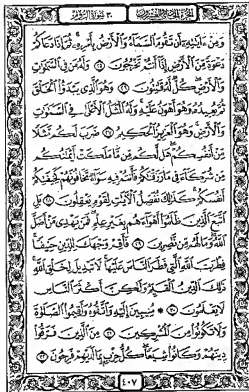 ٣٠ سورة الروم
وَمِنْ ءَايَٰتِهِۦٓ أَن تَقُومَ ٱلسَّمَآءُ وَٱلْأَرْضُ بِأَمْرِهِۦ ۚ ثُمَّ إِذَا دَعَاكُمْ
دَعْوَةً مِّنَ ٱلْأَرْضِ إِذَآ أَنتُمْ تَخْرُجُونَ ٢٥ وَلَهُۥ مَن فِى ٱلسَّمَٰوَٰتِ
وَٱلْأَرْضِ ۖ كُلٌّ لَّهُۥ قَٰنِتُونَ ٢٦ وَهُوَ ٱلَّذِى يَبْدَؤُا۟ ٱلْخَلْقَ
ثُمَّ يُعِيدُهُۥ وَهُوَ أَهْوَنُ عَلَيْهِ ۚ وَلَهُ ٱلْمَثَلُ ٱلْأَعْلَىٰ فِى ٱلسَّمَٰوَٰتِ
وَٱلْأَرْضِ ۚ وَهُوَ ٱلْعَزِيزُ ٱلْحَكِيمُ ٢٧ ضَرَبَ لَكُم مَّثَلًا
مِّنْ أَنفُسِكُمْ ۖ هَل لَّكُم مِّن مَّا مَلَكَتْ أَيْمَٰنُكُم
مِّن شُرَكَآءَ فِى مَا رَزَقْنَٰكُمْ فَأَنتُمْ فِيهِ سَوَآءٌ تَخَافُونَهُمْ كَخِيفَتِكُمْ
أَنفُسَكُمْ ۚ كَذَٰلِكَ نُفَصِّلُ ٱلْءَايَٰتِ لِقَوْمٍ يَعْقِلُونَ ٢٨ بَلِ
ٱتَّبَعَ ٱلَّذِينَ ظَلَمُوٓا۟ أَهْوَآءَهُم بِغَيْرِ عِلْمٍ ۖ فَمَن يَهْدِى مَنْ أَضَلَّ
ٱللَّهُ ۖ وَمَا لَهُم مِّن نَّٰصِرِينَ ٢٩ فَأَقِمْ وَجْهَكَ لِلدِّينِ حَنِيفًا ۚ
فِطْرَتَ ٱللَّهِ ٱلَّتِى فَطَرَ ٱلنَّاسَ عَلَيْهَا ۚ لَا تَبْدِيلَ لِخَلْقِ ٱللَّهِ ۚ
ذَٰلِكَ ٱلدِّينُ ٱلْقَيِّمُ وَلَٰكِنَّ أَكْثَرَ ٱلنَّاسِ
لَا يَعْلَمُونَ ٣٠ مُنِيبِينَ إِلَيْهِ وَٱتَّقُوهُ وَأَقِيمُوا۟ ٱلصَّلَوٰةَ
وَلَا تَكُونُوا۟ مِنَ ٱلْمُشْرِكِينَ ٣١ مِنَ ٱلَّذِينَ فَرَّقُوا۟
دِينَهُمْ وَكَانُوا۟ شِيَعًا ۖ كُلُّ حِزْبٍۭ بِمَا لَدَيْهِمْ فَرِحُونَ ٣٢
٤٠٧